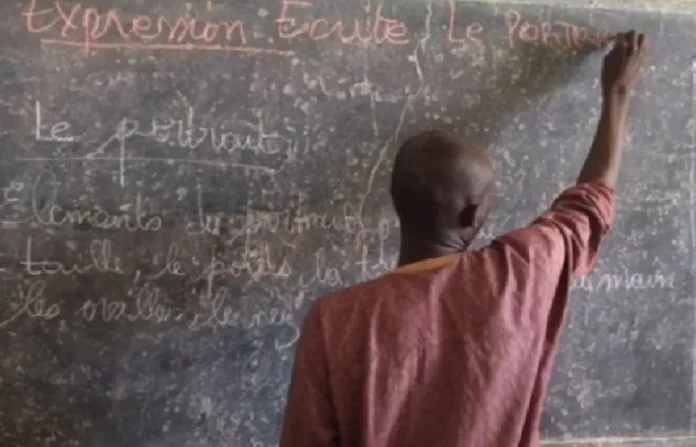 Expression Écrite Le PORTRAI
Le portrait
Elements du portrait
- taille, le poids, la main
les oreilles, le nez